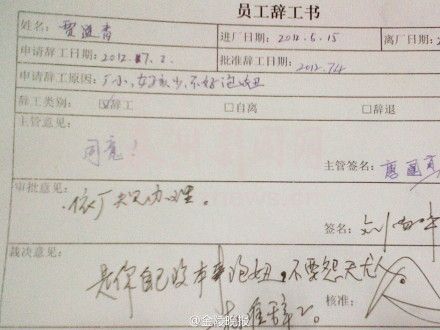 员工辞工书
姓名: 贾进青 进厂日期: 2012.5.15 离厂日期
申请辞工日期: 2012.7.2. 批准辞工日期: 2012.7.4
申请辞工原因: 厂小,女孩少,不好泡妞
辞工类别: ☑辞工 □自离 □辞退
主管意见:
同意!
主管签名:
审批意见:
依厂规办理。
签名: 刘
裁决意见:
是你自己没本事泡妞,不要怨天尤人。
准辞工。 核准:
@金陵晚报